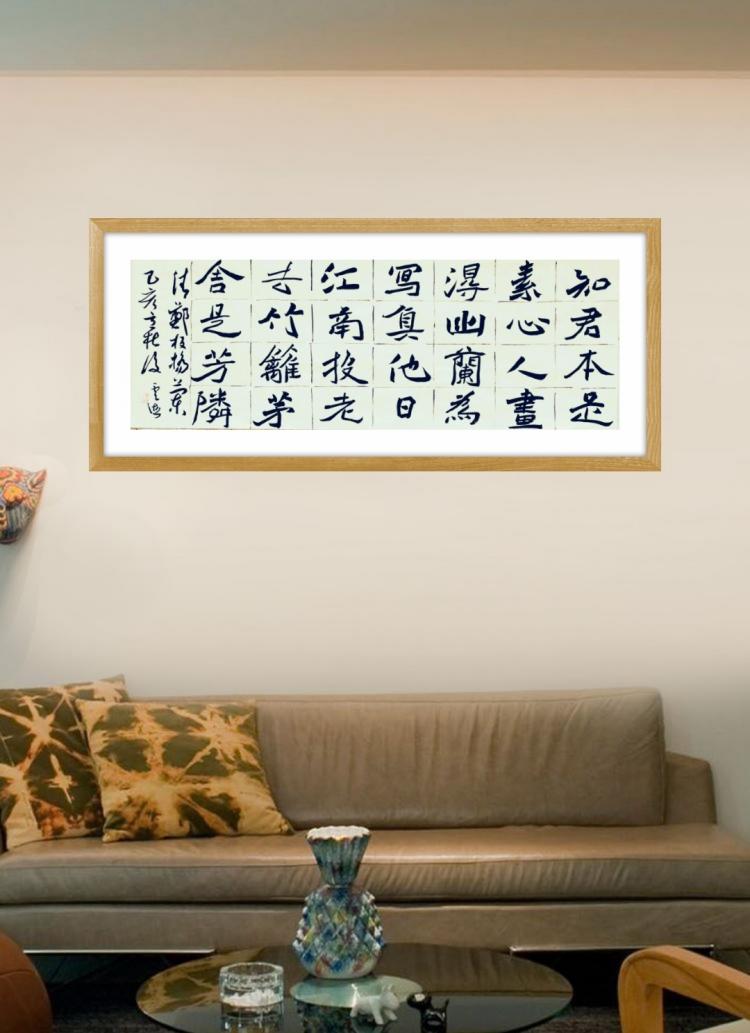 知君本是
素心人畫
淂幽蘭為
冩真他日
江南投老
去竹籬茅
舍是芳隣
清鄭板橋蘭
乙亥立秋後